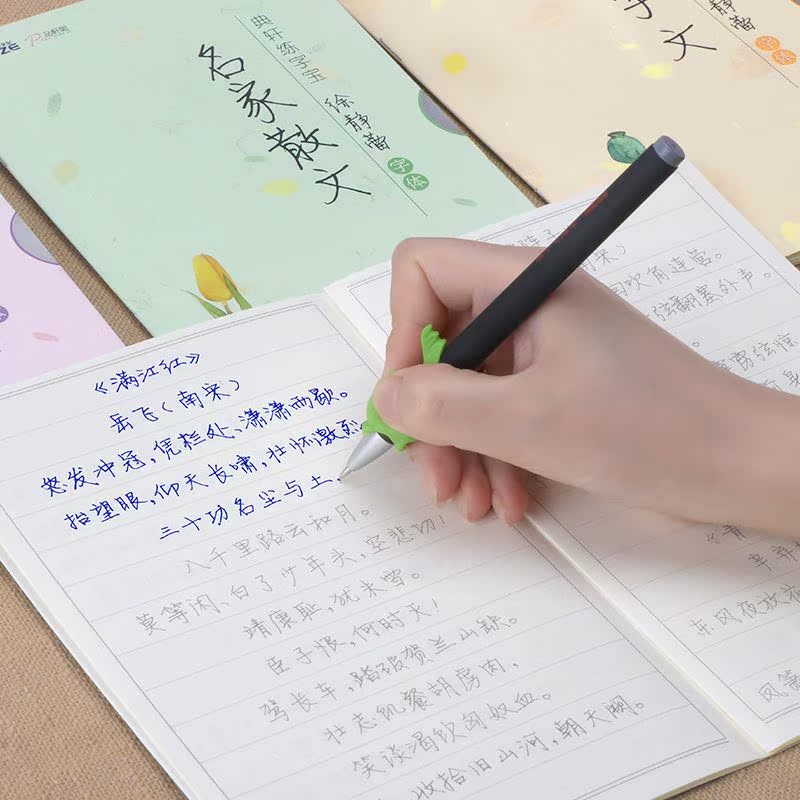 典轩练字宝
名家散文
徐静蕾
字体
散文
静蕾
字体
《满江红》
岳飞(南宋)
怒发冲冠,凭栏处、潇潇雨歇。
抬望眼,仰天长啸,壮怀激烈。
三十功名尘与土,
八千里路云和月。
莫等闲、白了少年头,空悲切!
靖康耻,犹未雪。
臣子恨,何时灭!
驾长车,踏破贺兰山缺。
壮志饥餐胡虏肉,
笑谈渴饮匈奴血。
收拾旧山河,朝天阙。
吹角连营。
弦翻塞外声。
弦惊
《青
辛弃
东风夜放花
凤箫